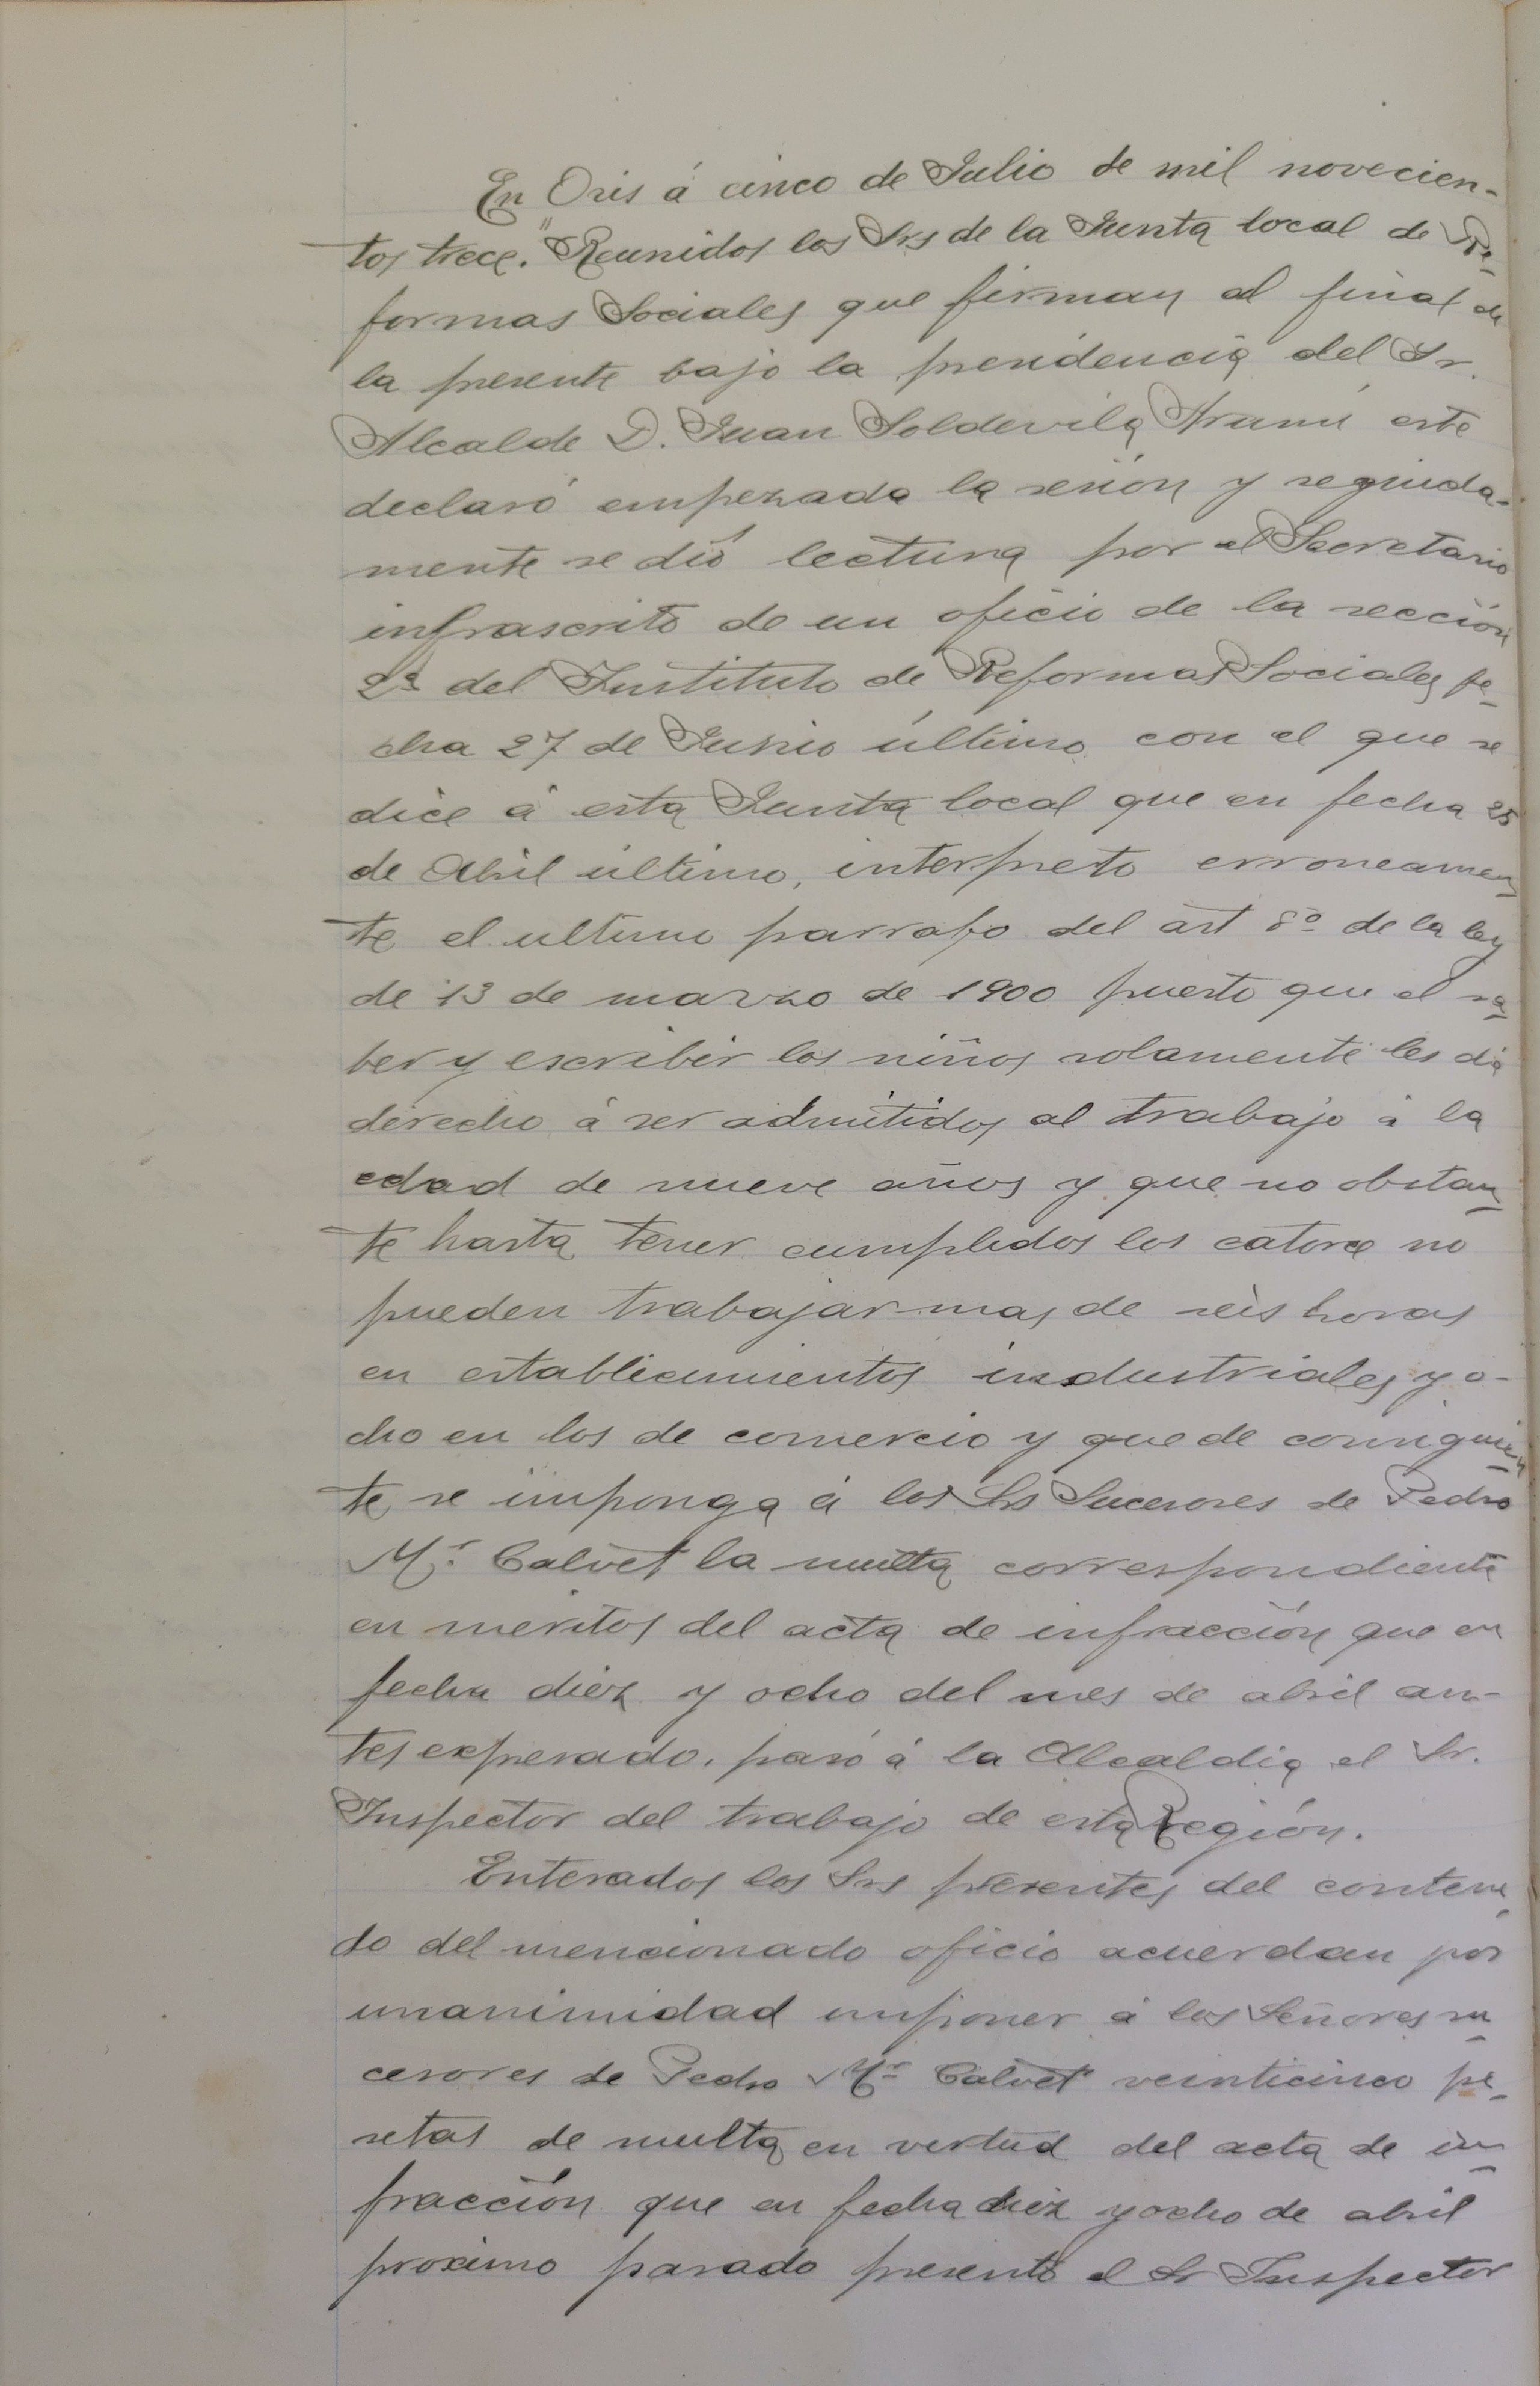 En Oris á cinco de Julio de mil novecien-
tos trece." Reunidos los Srs de la Junta local de Re-
formas Sociales que firman al final de
la presente bajo la presidencia del Sr.
Alcalde D. Juan Soldevila Arumí este
declaró empezada la sesión y seguida-
mente se dió lectura por el Secretario
infrascrito de un oficio de la sección
2ª del Instituto de Reformas Sociales fe-
cha 27 de Junio último con el que se
dice á esta Junta local que en fecha 25
de Abril último, interpreto erroneamen-
te el ultimo parrafo del art 8º de la ley
de 13 de marzo de 1900 puesto que el sa-
ber y escribir los niños solamente les dá
derecho á ser admitidos al trabajo á la
edad de nueve años y que no obstan-
te hasta tener cumplidos los catorce no
pueden trabajar mas de seis horas
en establicimientos industriales y o-
cho en los de comercio y que de consiguien-
te se imponga á los Srs Sucesores de Pedro
Mr. Calvet la multa correspondiente
en meritos del acta de infracción que en
fecha diez y ocho del mes de abril an-
tes expresado, pasó á la Alcaldia el Sr.
Inspector del trabajo de esta Región.
Enterados los Srs presentes del conteni-
do del mencionado oficio acuerdan por
unanimidad imponer á los Señores su-
cesores de Pedro Mr. Calvet veinticinco pe-
setas de multa en vertud del acta de in-
fracción que en fecha diez y ocho de abril
proximo pasado presentó el Sr Inspector